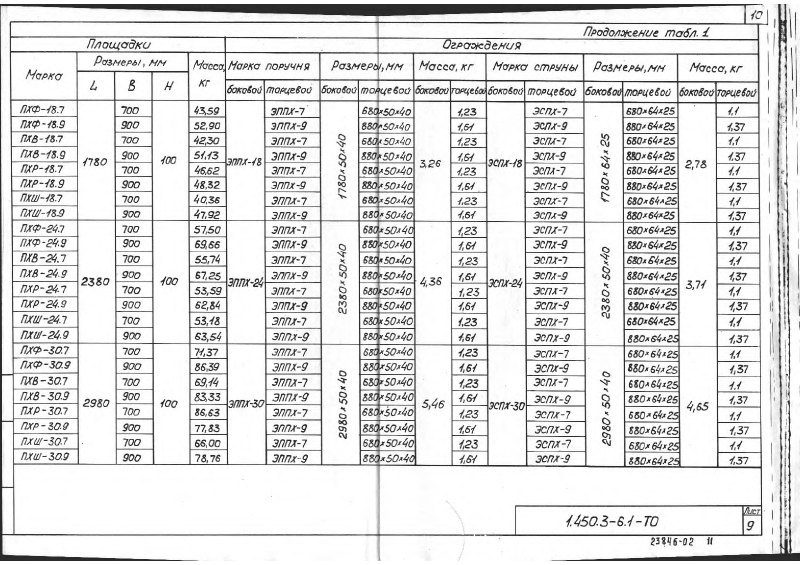 10
Продолжение табл. 1
Площадки Ограждения
Марка Размеры, мм Масса, кг Марка поручня Размеры, мм Масса, кг Марка струны Размеры, мм Масса, кг
L B H боковой торцевой боковой торцевой боковой торцевой боковой торцевой боковой торцевой боковой торцевой
ПХФ-18.7 700 43,59 ЭППХ-7 680×50×40 1,23 ЭСПХ-7 680×64×25 1,1
ПХФ-18.9 900 52,90 ЭППХ-9 880×50×40 1,61 ЭСПХ-9 880×64×25 1,37
ПХВ-18.7 700 42,30 ЭППХ-7 680×50×40 1,23 ЭСПХ-7 680×64×25 1,1
ПХВ-18.9 900 51,13 ЭППХ-9 880×50×40 1,61 ЭСПХ-9 880×64×25 1,37
1780 100 ЭППХ-18 1780×50×40 3,26 ЭСПХ-18 1780×64×25 2,78
ПХР-18.7 700 46,62 ЭППХ-7 680×50×40 1,23 ЭСПХ-7 680×64×25 1,1
ПХР-18.9 900 48,32 ЭППХ-9 880×50×40 1,61 ЭСПХ-9 880×64×25 1,37
ПХШ-18.7 700 40,36 ЭППХ-7 680×50×40 1,23 ЭСПХ-7 680×64×25 1,1
ПХШ-18.9 900 47,92 ЭППХ-9 880×50×40 1,61 ЭСПХ-9 880×64×25 1,37
ПХФ-24.7 700 57,50 ЭППХ-7 680×50×40 1,23 ЭСПХ-7 680×64×25 1,1
ПХФ-24.9 900 69,66 ЭППХ-9 880×50×40 1,61 ЭСПХ-9 880×64×25 1,37
ПХВ-24.7 700 55,74 ЭППХ-7 680×50×40 1,23 ЭСПХ-7 680×64×25 1,1
ПХВ-24.9 900 67,25 ЭППХ-9 880×50×40 1,61 ЭСПХ-9 880×64×25 1,37
2380 100 ЭППХ-24 2380×50×40 4,36 ЭСПХ-24 2380×50×40 3,71
ПХР-24.7 700 53,59 ЭППХ-7 680×50×40 1,23 ЭСПХ-7 680×64×25 1,1
ПХР-24.9 900 62,84 ЭППХ-9 880×50×40 1,61 ЭСПХ-9 880×64×25 1,37
ПХШ-24.7 700 53,18 ЭППХ-7 680×50×40 1,23 ЭСПХ-7 680×64×25 1,1
ПХШ-24.9 900 63,54 ЭППХ-9 880×50×40 1,61 ЭСПХ-9 880×64×25 1,37
ПХФ-30.7 700 71,37 ЭППХ-7 680×50×40 1,23 ЭСПХ-7 680×64×25 1,1
ПХФ-30.9 900 86,39 ЭППХ-9 880×50×40 1,61 ЭСПХ-9 880×64×25 1,37
ПХВ-30.7 700 69,14 ЭППХ-7 680×50×40 1,23 ЭСПХ-7 680×64×25 1,1
ПХВ-30.9 900 83,33 ЭППХ-9 880×50×40 1,61 ЭСПХ-9 880×64×25 1,37
2980 100 ЭППХ-30 2980×50×40 5,46 ЭСПХ-30 2980×50×40 4,65
ПХР-30.7 700 86,63 ЭППХ-7 680×50×40 1,23 ЭСПХ-7 680×64×25 1,1
ПХР-30.9 900 77,83 ЭППХ-9 880×50×40 1,61 ЭСПХ-9 880×64×25 1,37
ПХШ-30.7 700 66,00 ЭППХ-7 680×50×40 1,23 ЭСПХ-7 680×64×25 1,1
ПХШ-30.9 900 78,76 ЭППХ-9 880×50×40 1,61 ЭСПХ-9 880×64×25 1,37
1.450.3-6.1-ТО
Лист
9
23846-02 11